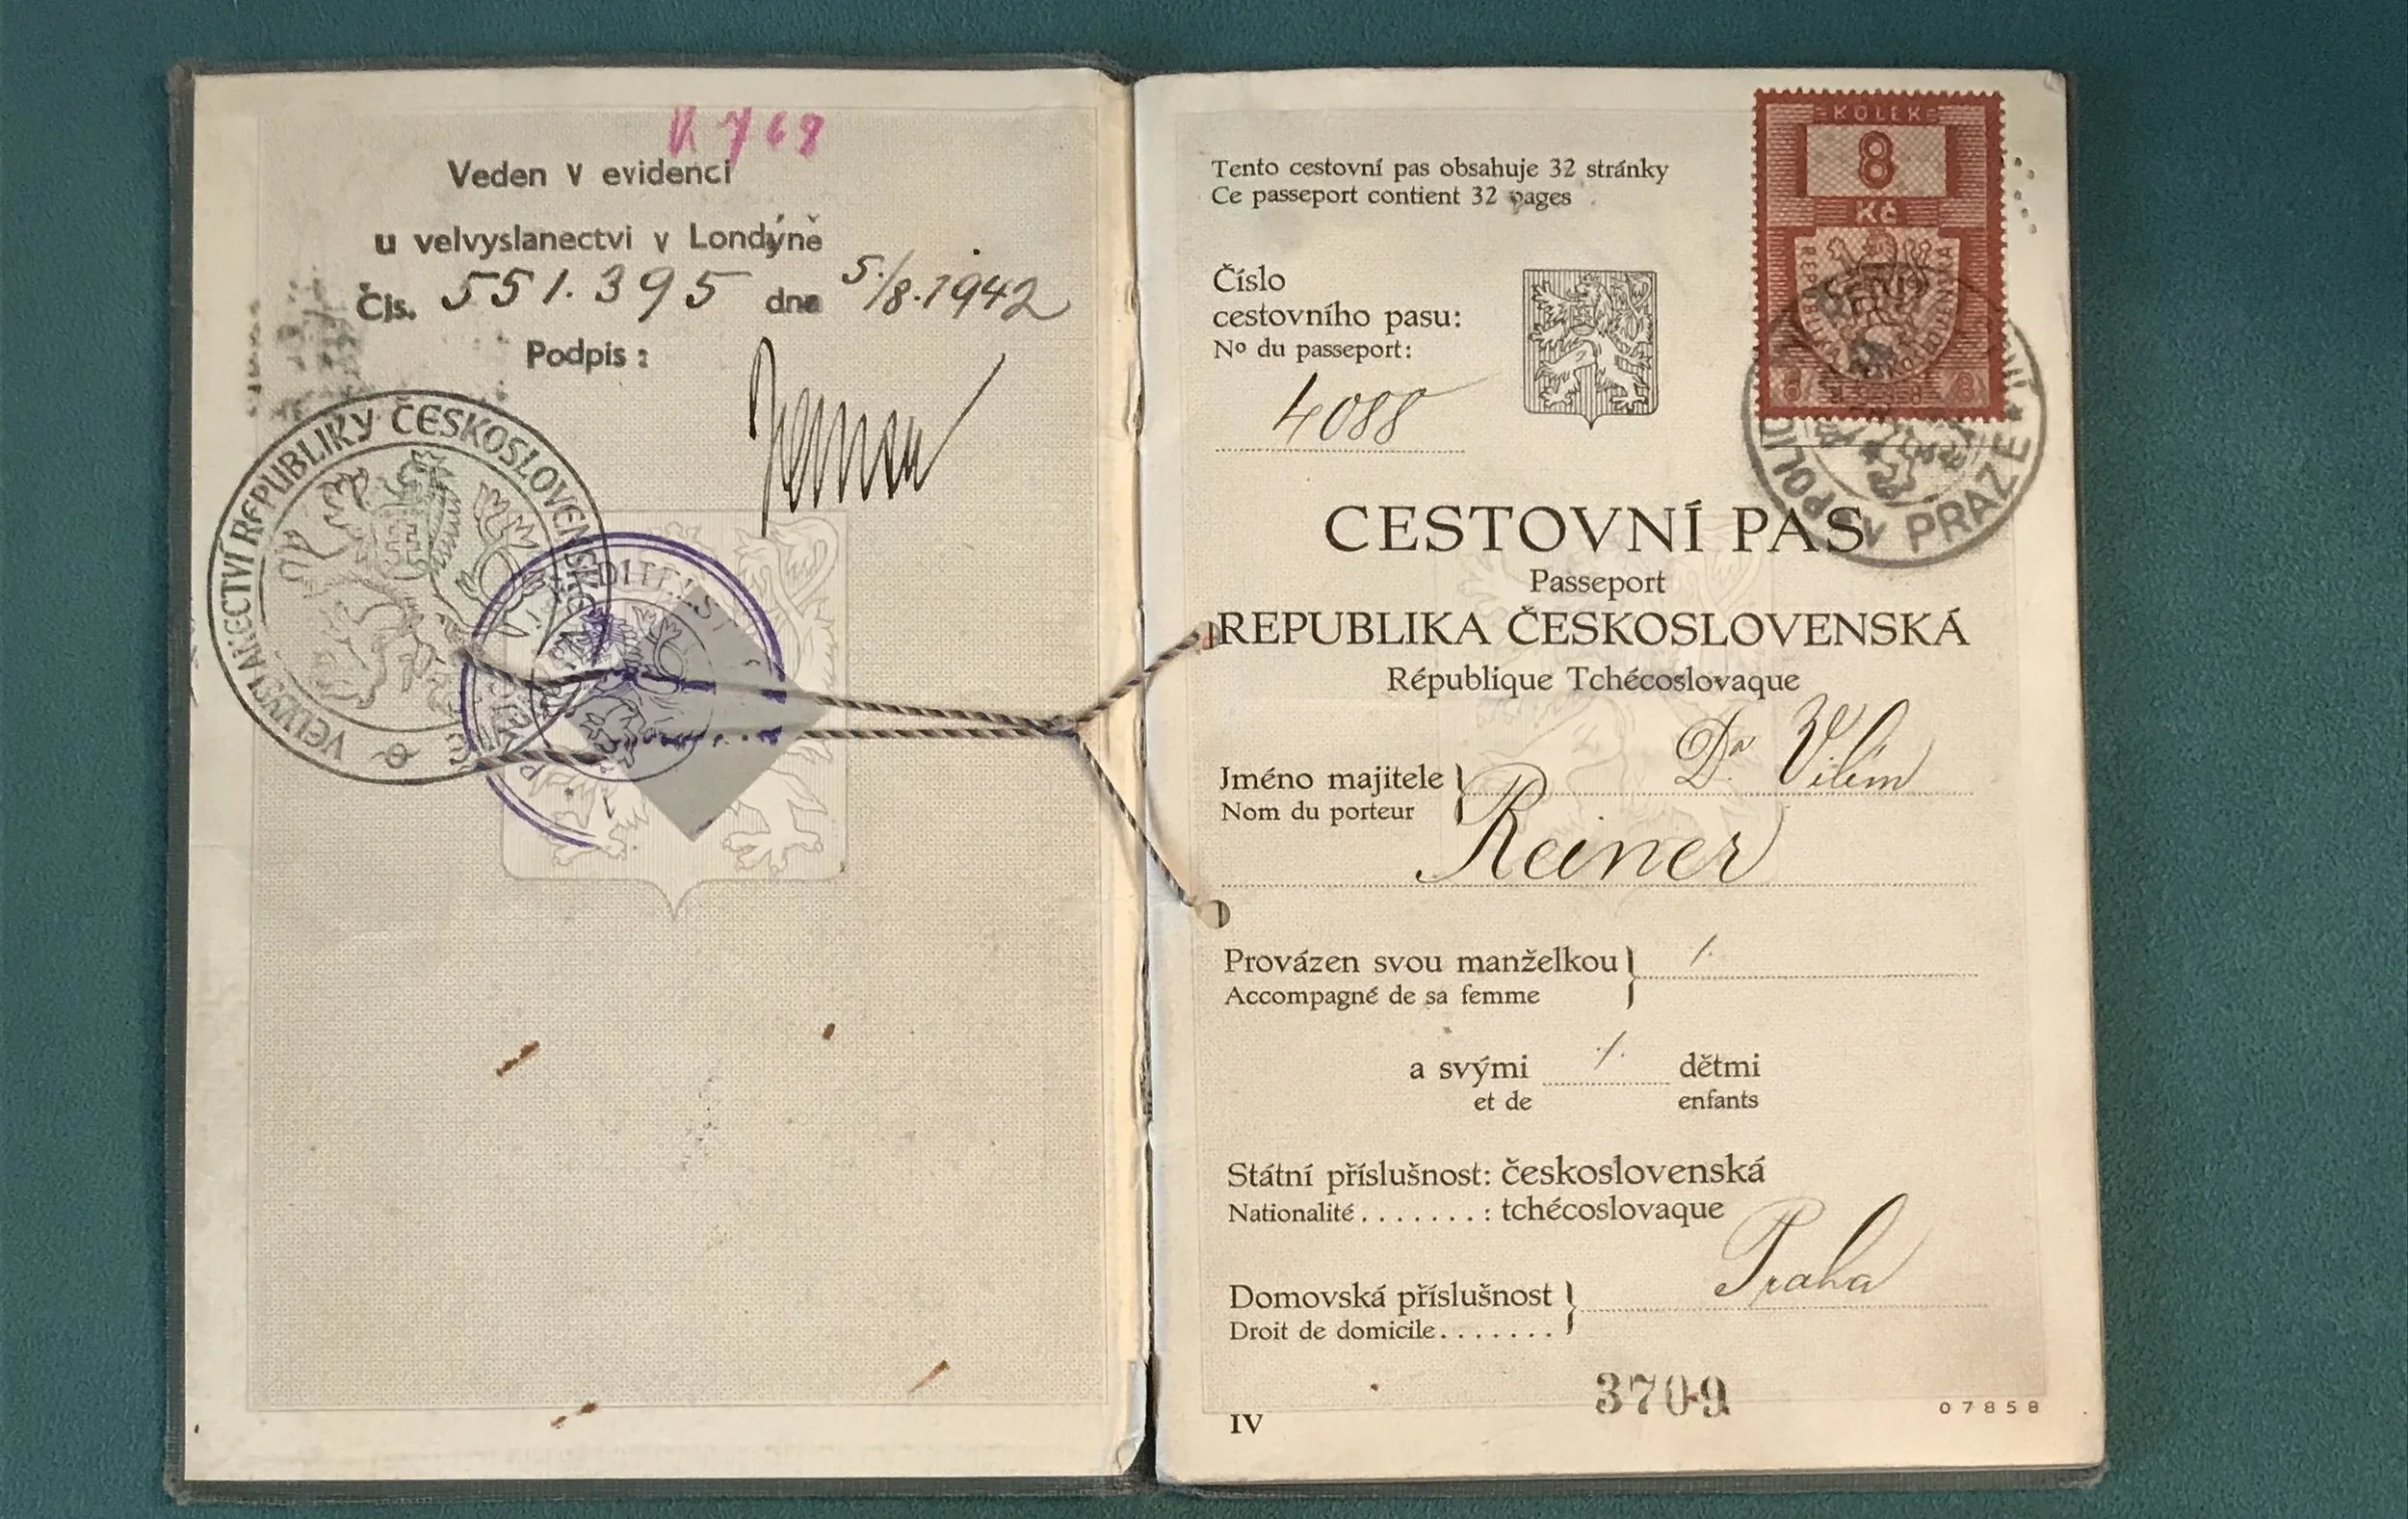 K 768
Veden v evidenci
u velvyslanectvi v Londýně
Čis. 551.395 dne 5./8.1942
Podpis:
VELVYSLANECTVÍ REPUBLIKY ČESKOSLOVENSKÉ
Tento cestovní pas obsahuje 32 stránky
Ce passeport contient 32 pages
KOLEK
8
Kč
REPUBLIKA ČESKOSLOVENSKÁ
8 8
V PRAZE
Číslo
cestovního pasu:
Nº du passeport:
4088
CESTOVNÍ PAS
Passeport
REPUBLIKA ČESKOSLOVENSKÁ
République Tchécoslovaque
Jméno majitele Dr Vilém
Nom du porteur
Reiner
Provázen svou manželkou ⁒
Accompagné de sa femme
a svými ⁒ dětmi
et de enfants
Státní příslušnost: československá
Nationalité.......: tchécoslovaque
Domovská příslušnost Praha
Droit de domicile.......
3709
IV 07858